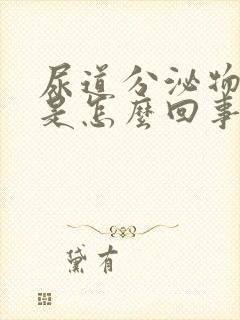 尿道分泌物
是怎麼回事
黛有